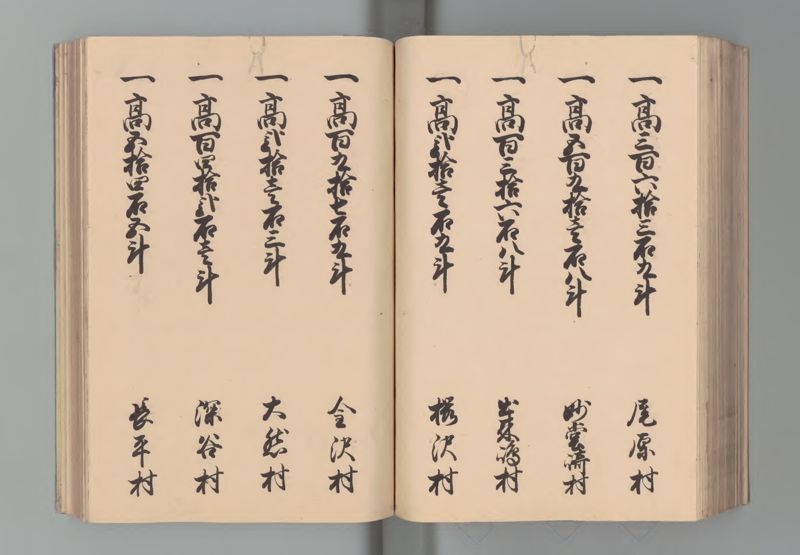 一 高三百六拾三石九斗 尾原村
一 高五百九拾壱石八斗 妙堂崎村
一 高百三拾六石八斗 出来嶋村
一 高弐拾壱石九斗 櫻沢村
一 高百九拾七石九斗 金沢村
一 高弐拾壱石三斗 大然村
一 高百四拾弐石壱斗 深谷村
一 高五拾四石五斗 長平村